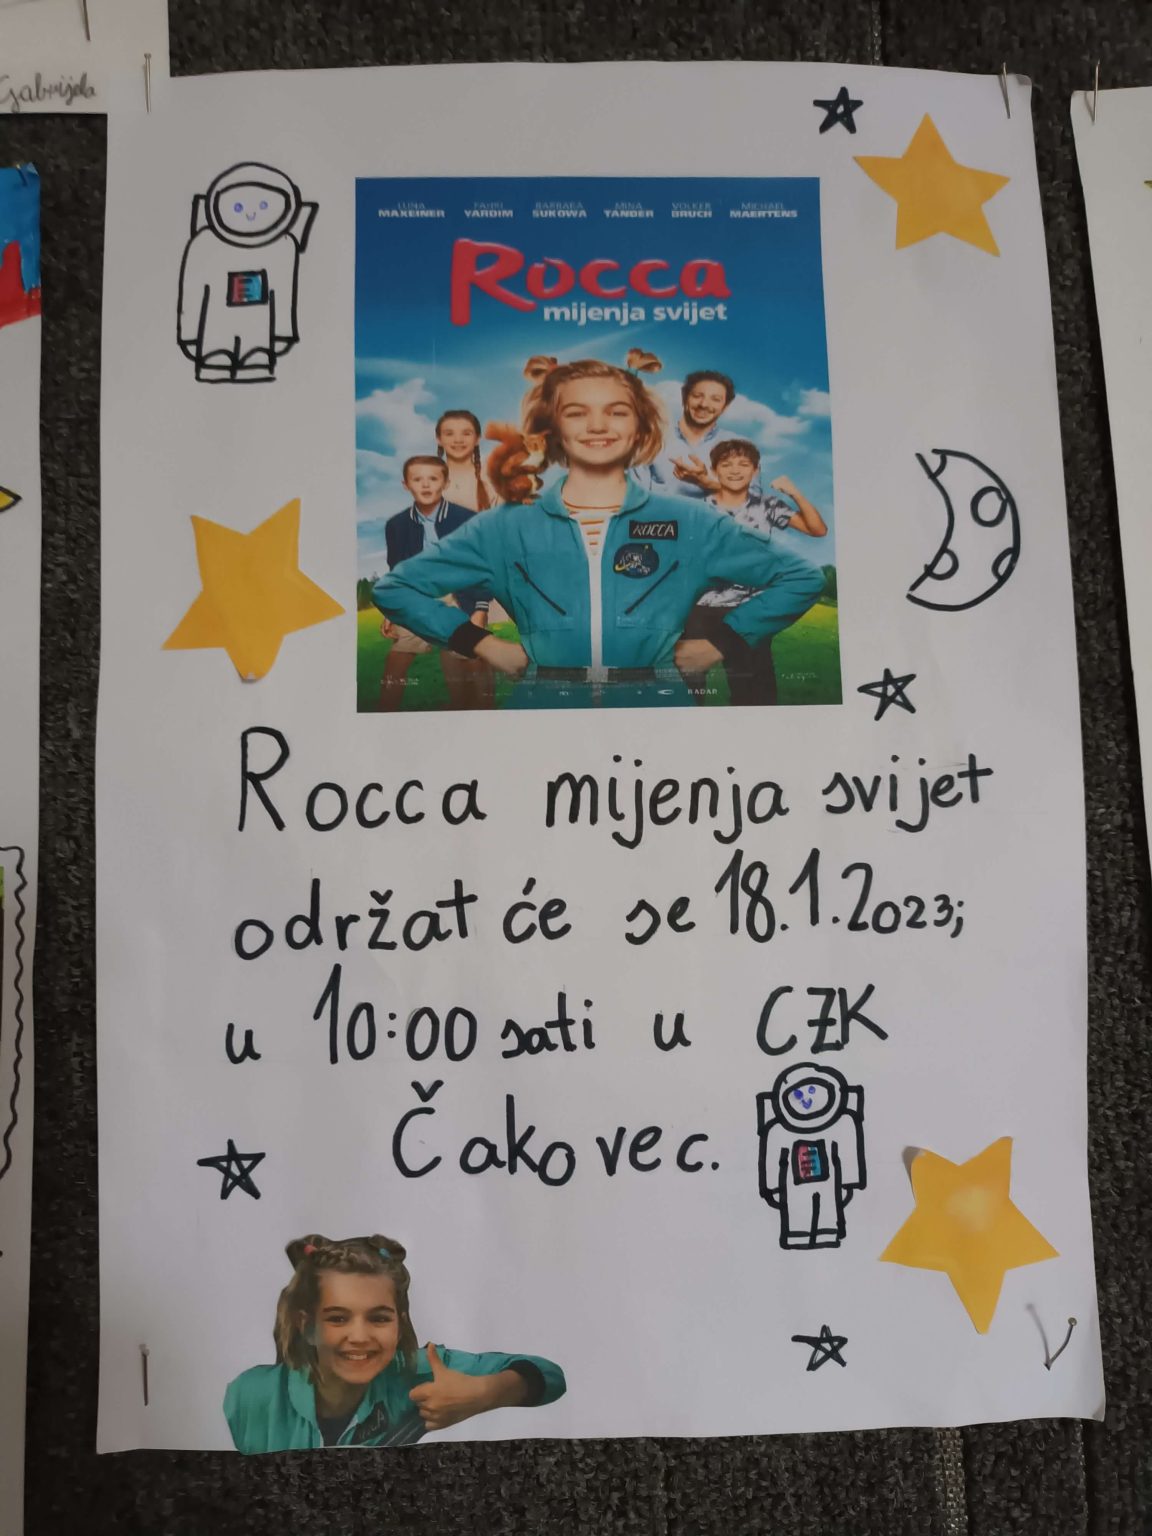 Gabrijela
LUNA MAXEINER FAHRI YARDIM BARBARA SUKOWA MINA TANDER VOLKER BRUCH MICHAEL MAERTENS
Rocca
mijenja svijet
ROCCA
RADAR
Rocca mijenja svijet
održat će se 18.1.2023;
u 10:00 sati u CZK
Čakovec.